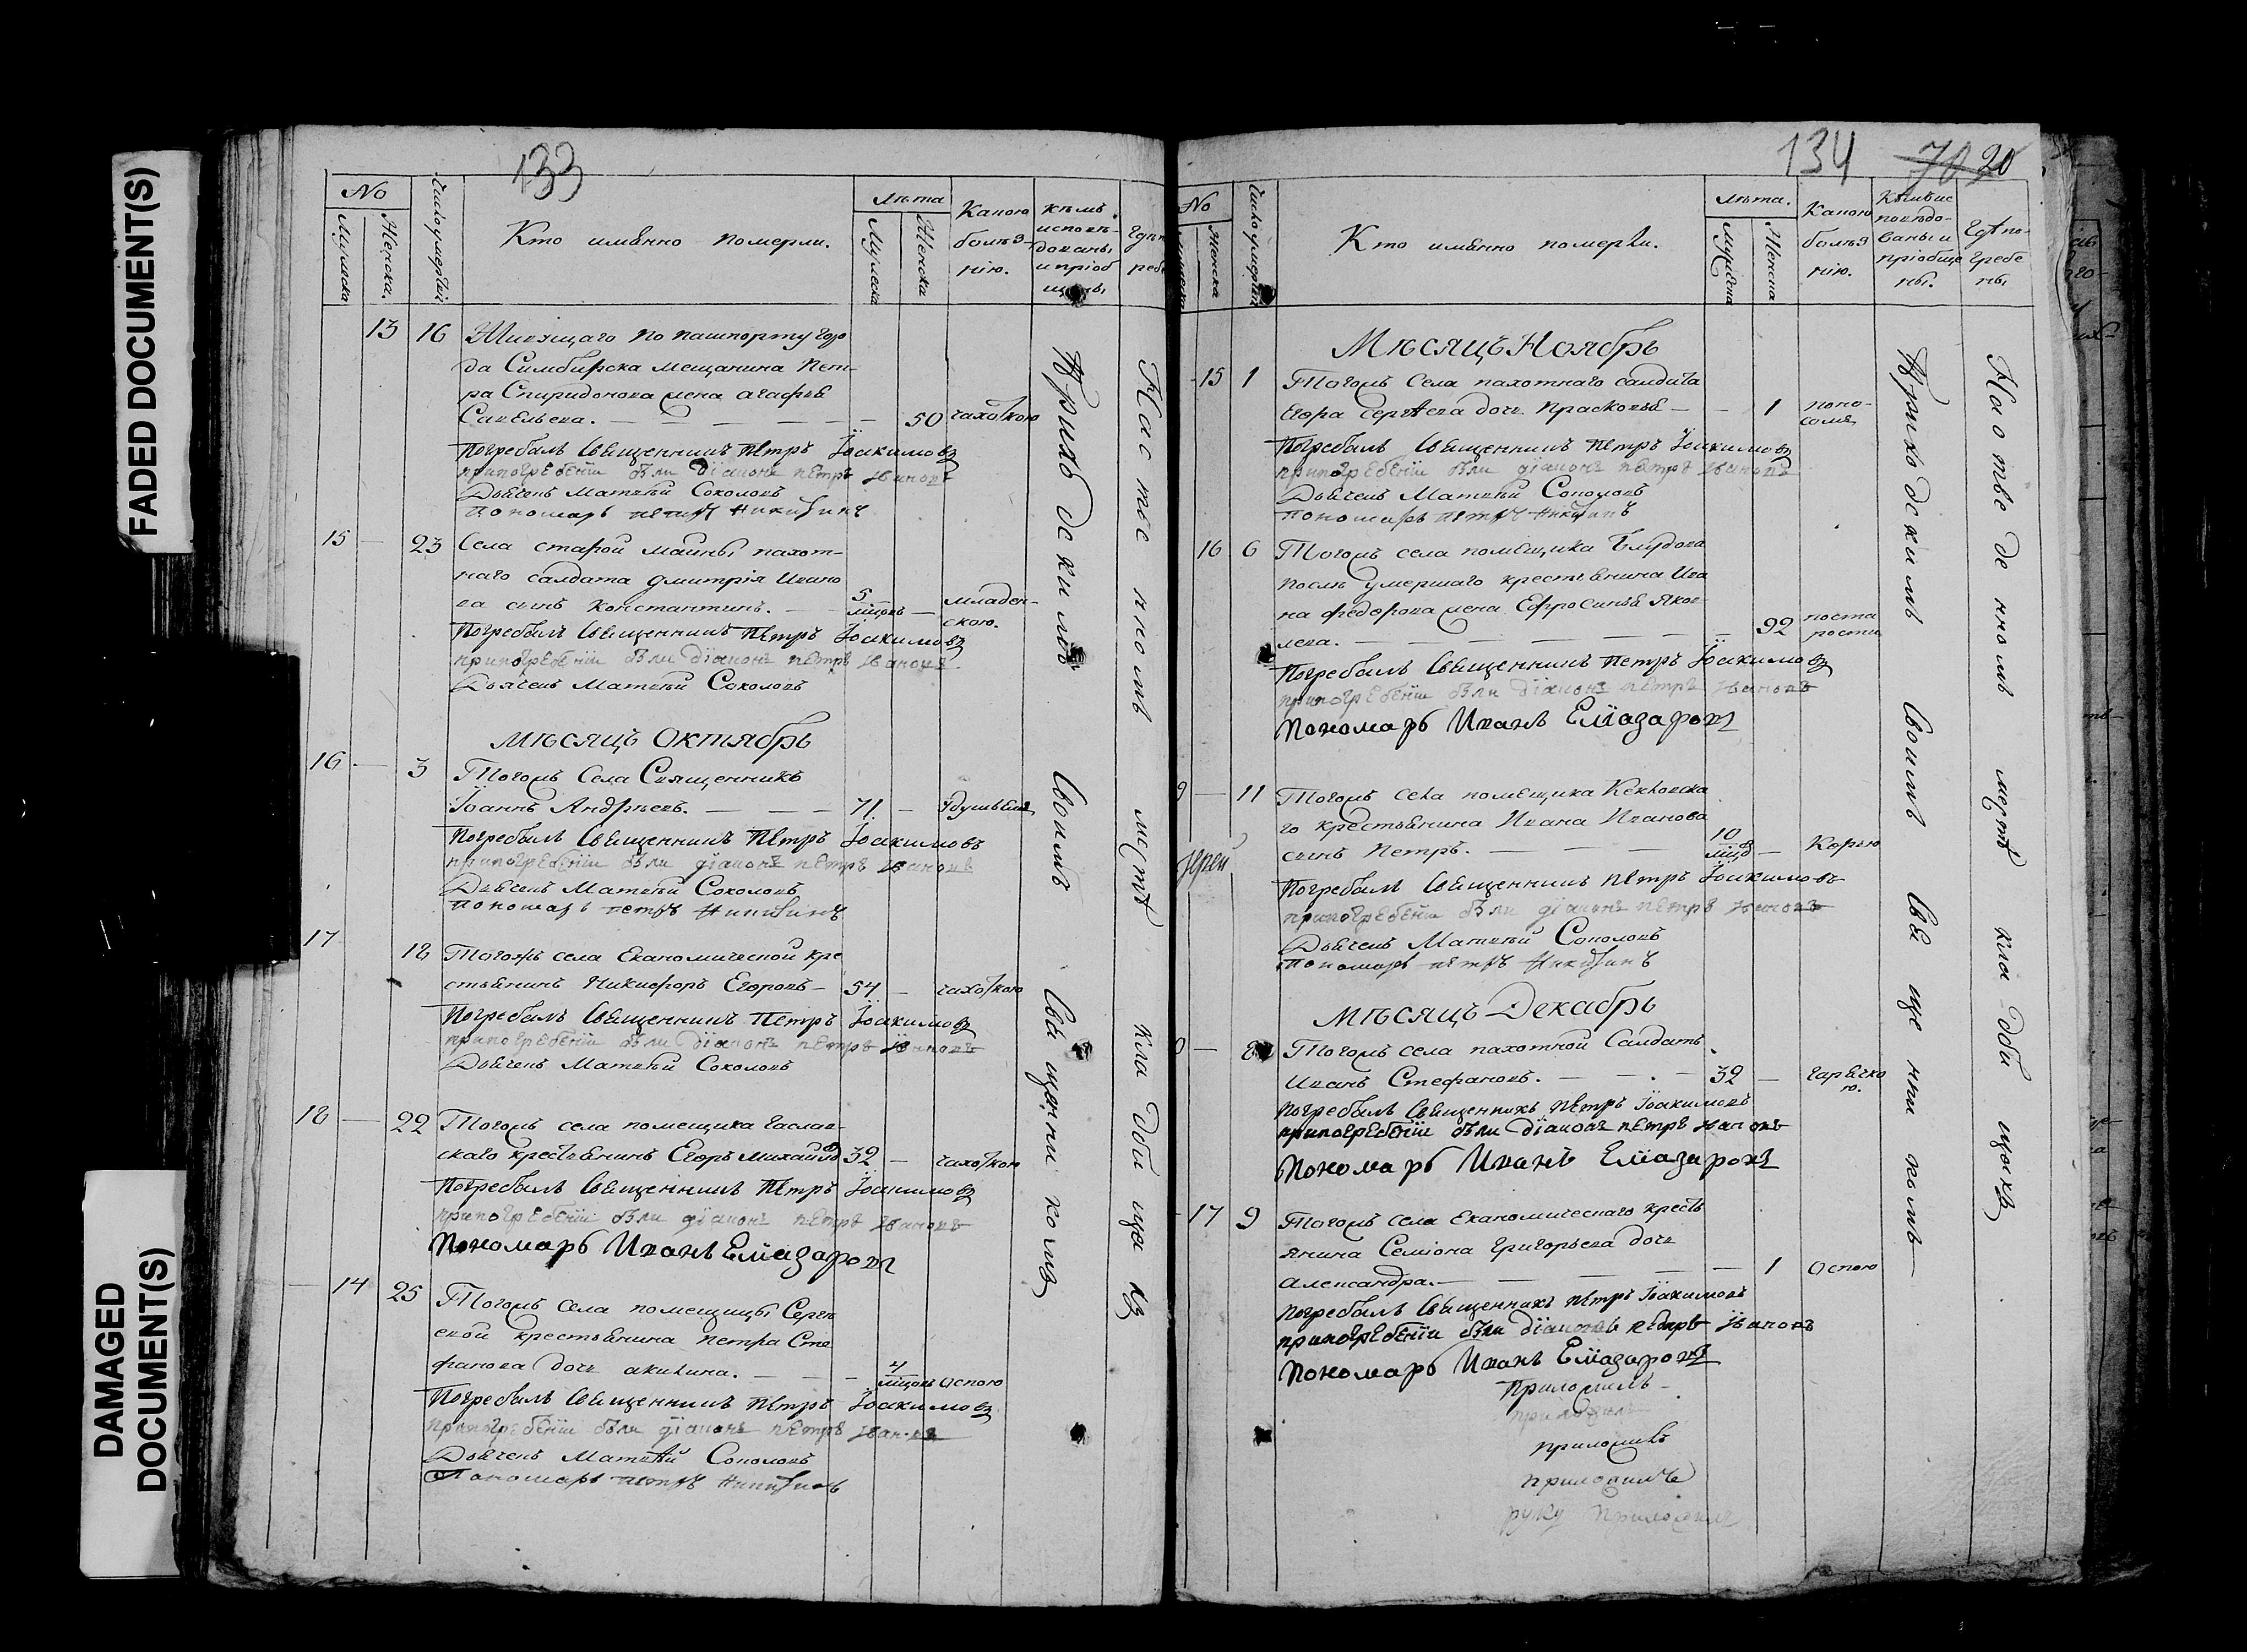 FADED DOCUMENT(S)
DAMAGED
DOCUMENT(S)
133
No
Мужеска
Женска.
Число умертвій
Кто имянно померли.
Лѣта
Мужеска
Женска
Какою
болѣз-
нію.
кѣмъ
исповѣ-
дованы
и пріоб
щены
13 16 Живящаго по пашпорту горо
да Симбирска мещанина Пет-
ра Спиридонова жена агафья
Савельева. 50 чахоткою
Погребалъ Священникъ Петръ Іоакимовъ
при погребеніи были діаконъ петръ Ивановъ
Дьячекъ Матвѣй Соколовъ
пономарь петръ Никитинъ
15 — 23 Села старой майны пахот-
наго салдата дмитрія Ивано
ва сынъ константинъ. 5 мцовъ — младен-
скою.
Погребалъ Священникъ Петръ Іоакимовъ
при погребеніи были діаконъ петръ Ивановъ
Дьячекъ Матвѣй Соколовъ
Мѣсяцъ Октябрь
16 — 3 Тогожъ Села Священникъ
Іоаннъ Андрѣевъ. 71 — удушьемъ
Погребалъ Священникъ Петръ Іоакимовъ
при погребеніи были діаконъ петръ Ивановъ
Дьячекъ Матвѣй Соколовъ
пономарь петръ Никитинъ
17 18 Тогожъ села Економической кре
стьянинъ Никифоръ Егоровъ 54 — чахоткою
Погребалъ Священникъ Петръ Іоакимовъ
при погребеніи были діаконъ петръ Ивановъ
Дьячекъ Матвѣй Соколовъ
18 — 22 Тогожъ села помещика
скаго крестьянинъ Егоръ Михайловъ 32 — чахоткою
Погребалъ Священникъ Петръ Іоакимовъ
при погребеніи были діаконъ петръ Ивановъ
Пономарь Иванъ Елиазаровъ
— 14 25 Тогожъ села помещицы
крестьянина Петра Сте
фанова дочь акилина. 4 мцовъ оспою
Погребалъ Священникъ Петръ Іоакимовъ
при погребеніи были діаконъ петръ Ивановъ
Дьячекъ Матвѣй Соколовъ
Пономарь петръ Никитинъ
Приходскимъ своимъ священникомъ
На отведенномъ мѣстѣ кладбища
134 70 20
No
Женска
Число умертвій
Кто имянно померли.
Лѣта.
Женска
Какою
болѣз
нію.
Кѣмъ ис
повѣдо-
ваны и
пріобще
ны.
Гдѣ по-
гребе
ны
Мѣсяцъ Ноябрь
15 1 Тогожъ Села пахотнаго салдата
Егора Сергѣева дочь Прасковья — 1 поно-
сомъ
Погребалъ Священникъ Петръ Іоакимовъ
при погребеніи были діаконъ петръ Ивановъ
Дьячекъ Матвѣй Соколовъ
пономарь петръ Никитинъ
16 6 Тогожъ села помещика Блудова
послѣ умершаго крестьянина Ива
на федорова жена Ефросинья Яков
лева. 92
Погребалъ Священникъ Петръ Іоакимовъ
при погребеніи были діаконъ петръ Ивановъ
Пономарь Иванъ Елиазаровъ
9 — 11 Тогожъ села помещика
го крестьянина Ивана Иванова
сынъ Петръ. 10 мцовъ — Корью
Погребалъ Священникъ Петръ Іоакимовъ
при погребеніи были діаконъ петръ Ивановъ
Дьячекъ Матвѣй Соколовъ
пономарь петръ Никитинъ
Іерей
Мѣсяцъ Декабрь
— 8 Тогожъ села пахотной Салдатъ
Иванъ Стефановъ. 32 — гарячко
ю.
Погребалъ Священникъ Петръ Іоакимовъ
при погребеніи были діаконъ петръ Ивановъ
Пономарь Иванъ Елиазаровъ
17 9 Тогожъ села Економическаго кресть
янина Семіона Григорьева дочь
Александра. — 1 оспою
Погребалъ Священникъ Петръ Іоакимовъ
при погребеніи были діаконъ петръ Ивановъ
Пономарь Иванъ Елиазаровъ
Приложилъ
приложилъ
приложилъ
приложилъ
руку приложилъ
Приходскимъ своимъ священникомъ
На отведенномъ мѣстѣ кладбища